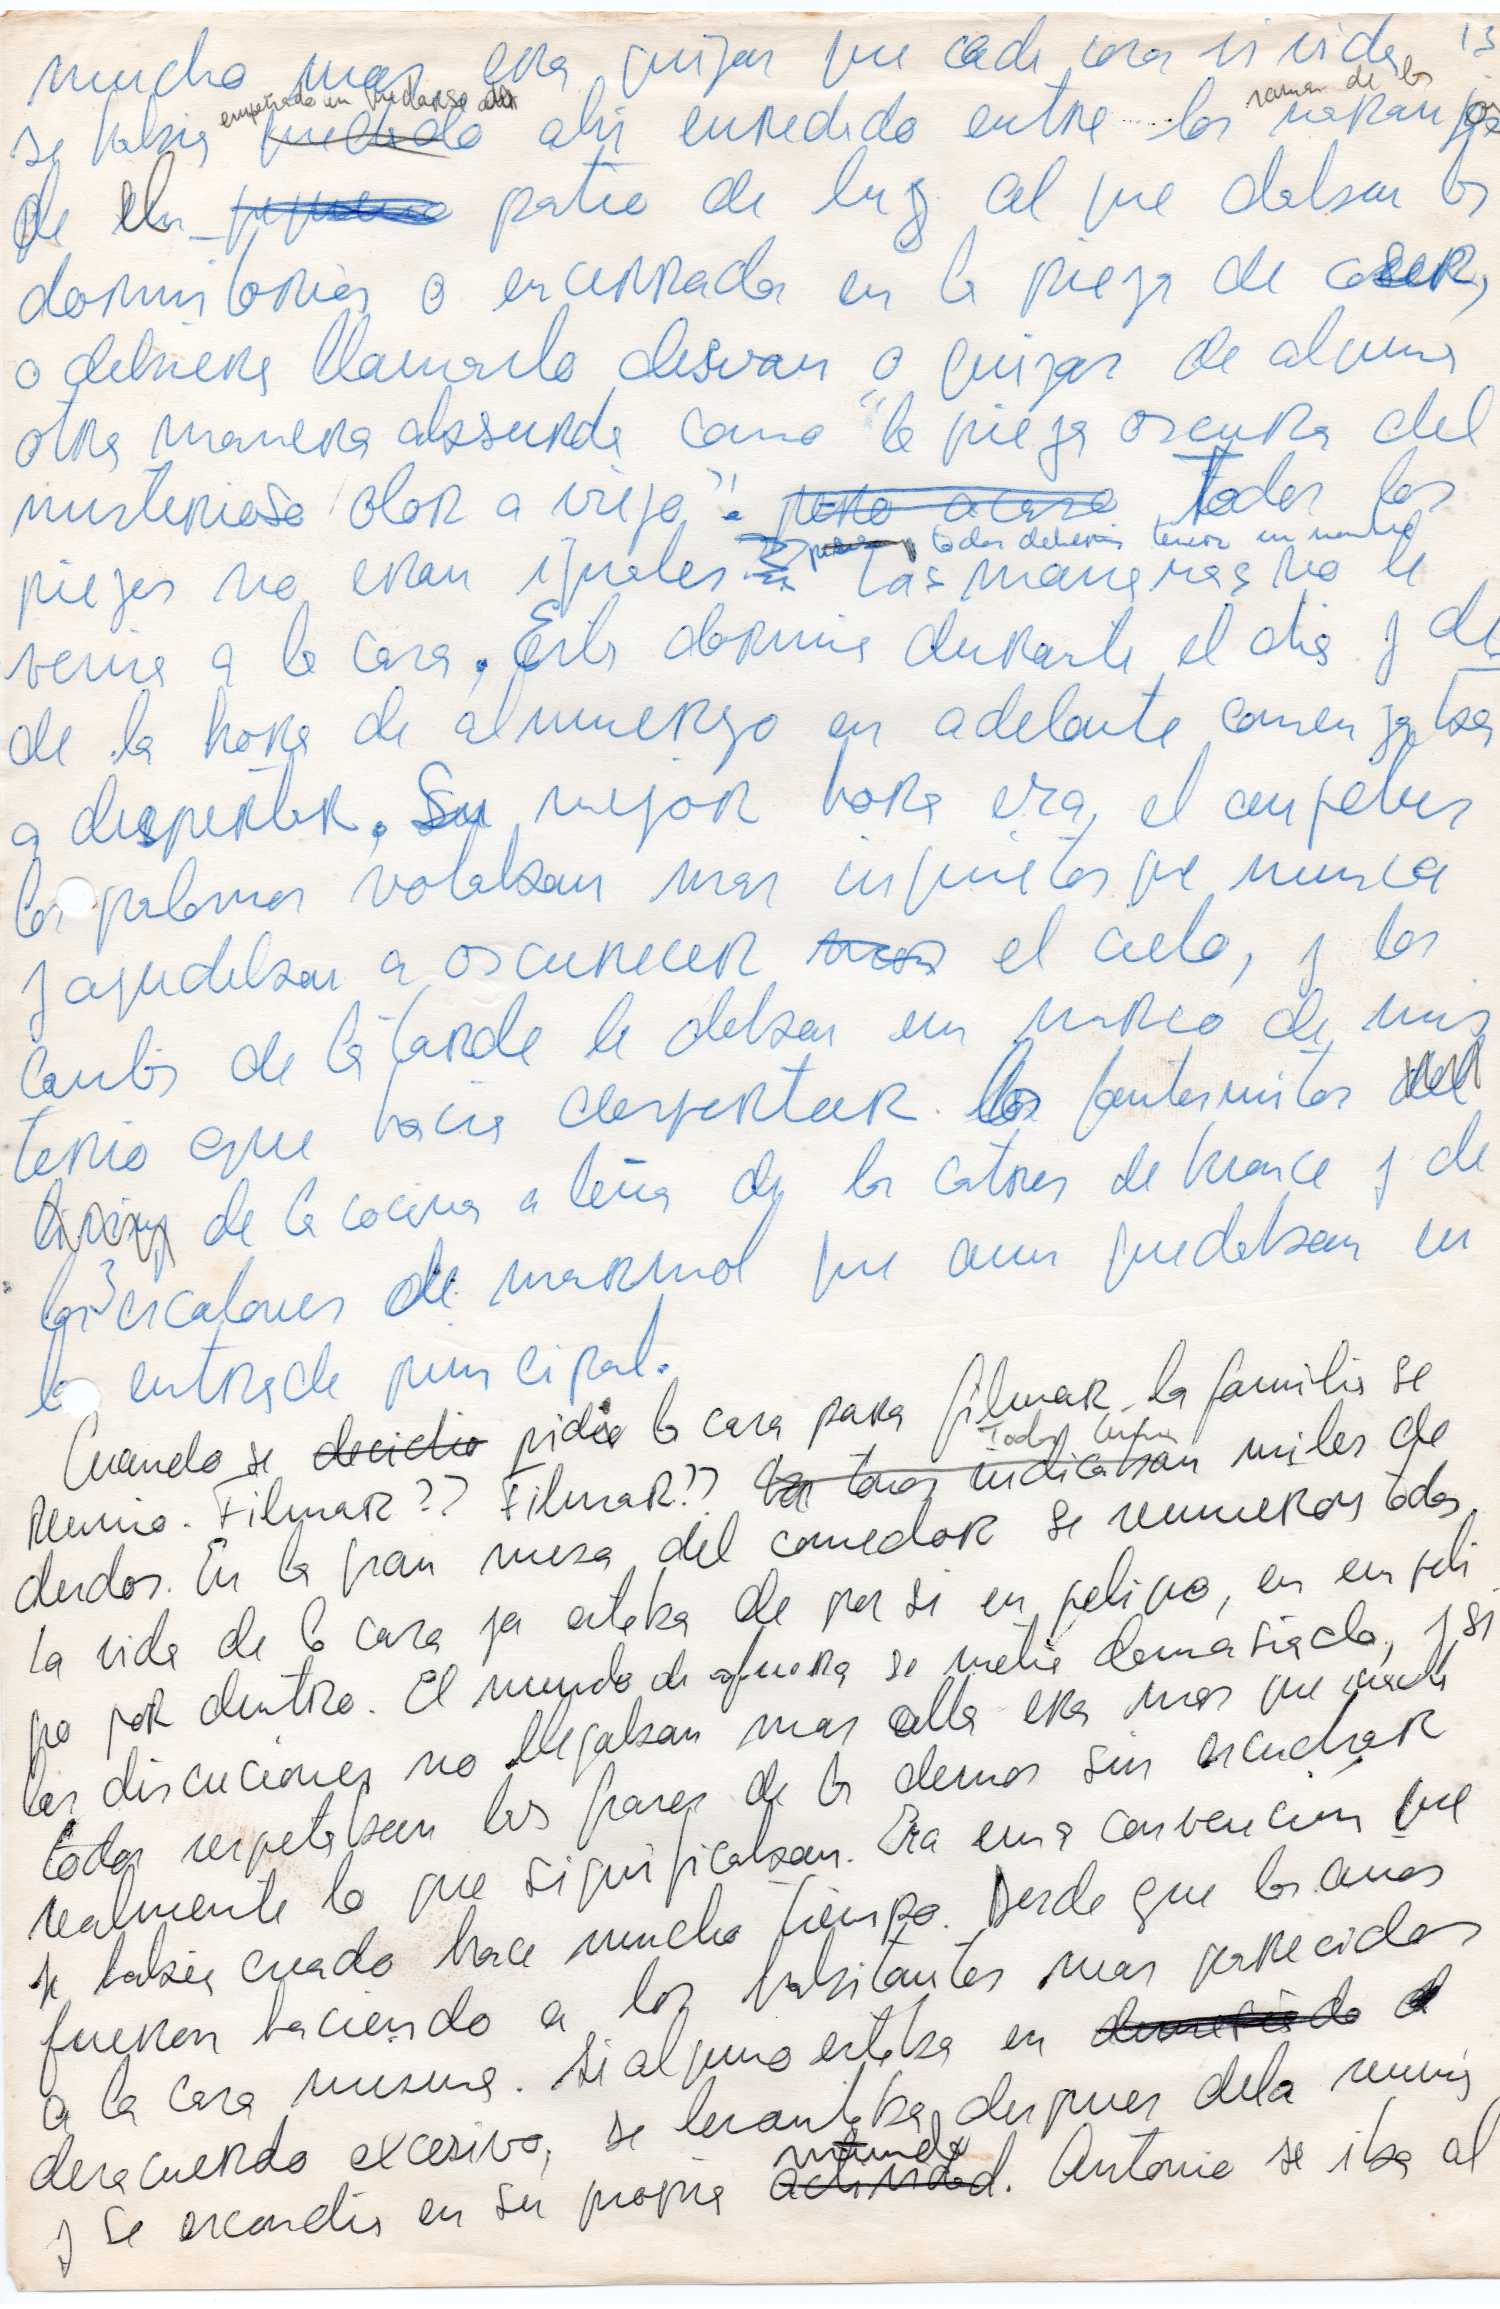 13
mucho mas era quizas que cada cosa vivida
empeñado en quedarse
ramas de los
se habia quedado ahi enredado entre los naranjos
de patio de luz al que daban los
dormitorios o encerrada en la pieza de coser,
o debiera llamarlo desvan o quizas de alguna
otra manera absurda como "la pieza oscura del
misterioso olor a viejo". pero acaso todas las
todas deberian tener un nombre
piezas no eran iguales las mañanas no le
venia a la casa. Esta dormia durante el dia y des
de la hora de almuerzo en adelante comenzaba
a despertar. Su mejor hora era el angelus
las palomas volaban mas inquietas que nunca
y ayudaban a oscurecer mas el cielo, y los
cantos de la tarde le daban un marco de mis
terio que hacia despertar los fantasmitas del
living de la cocina a leña de los catres de bronce y de
los 3 escalones de marmol que aun quedaban en
la entrada principal.
Cuando se decidio pidio la casa para filmar la familia se
Todos
reunio. Filmar?? Filmar?? tonos indicaban miles de
dudas. En la gran mesa del comedor se reunieron todos.
La vida de la casa ya estaba de por si en peligro, en un peli
gro por dentro. El mundo de afuera se metia demasiado, y si
las discuciones no llegaban mas alla era mas que nada
todos respetaban las frases de los demas sin escuchar
realmente lo que significaban. Era una convencion que
se habia creado hace mucho tiempo. Desde que los años
fueron haciendo a los habitantes mas parecidos
a la casa misma. Si alguno estaba en demasiado
desacuerdo excesivo, se levantaba despues dela reunion
mundo
y se escondia en su propia actividad. Antonio se iba al